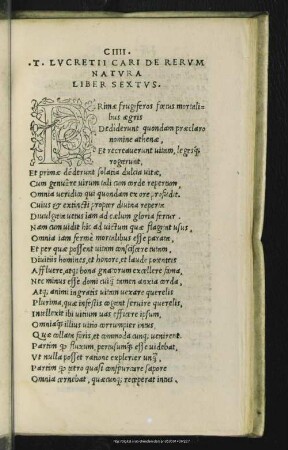 CIIII.
.T. LVCRETII CARI DE RERVM
NATVRA
LIBER SEXTVS.
PRimæ frugiferos fœtus mortali=
bus ægris
Dediderunt quondam præclaro
nomine athenæ,
Et recreauerunt uitam, legesq;
rogarunt,
Et primæ dederunt solatia dulcia uitæ,
Cum genuêre uirum tali cum corde repertum,
Omnia ueridico qui quondam ex ore, profudit.
Cuius et extincti propter diuina reperta
Diuulgata uetus iam ad cælum gloria fertur.
Nam cum uidit hic ad uictum quæ flagitat usus
Omnia iam fermè mortalibus esse parata,
Et per quæ possent uitam consistere tutam,
Diuitiis homines, et honore, et laude potentes
Affluere, atq; bona gnatorum excellere fama,
Nec minus esse domi cuiq; tamen anxia corda,
Atq; animi ingratis uitam uexare querelis
Plurima, quæ infestis cogant seruire querelis,
Intellexit ibi uitium uas efficere ipsum,
Omniaq; illius uitio corrumpier intus,
Quæ collata foris, et commoda cunq; uenirent.
Partim q̃ fluxum, pertusumq; esse uidebat,
Vt nulla posset ratione explerier unq̃,
Partim q̃ tetro quasi conspurcare sapore
Omnia cernebat, quæcunq; receperat intus.